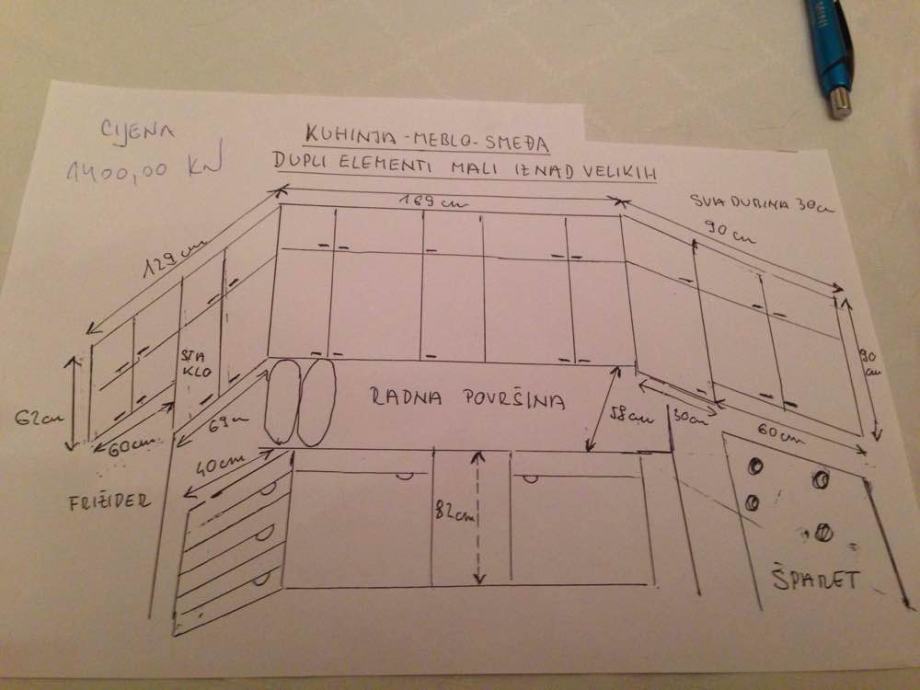 CIJENA
1400,00 KN
KUHINJA-MEBLO-SMEĐA
DUPLI ELEMENTI MALI IZNAD VELIKIH
SVA DUBINA 30cm
169cm
129cm
90cm
STA
KLO
90
cm
62cm
60cm
69cm
RADNA POVRŠINA
58cm
30cm
60cm
40cm
FRIŽIDER
82cm
ŠPARET